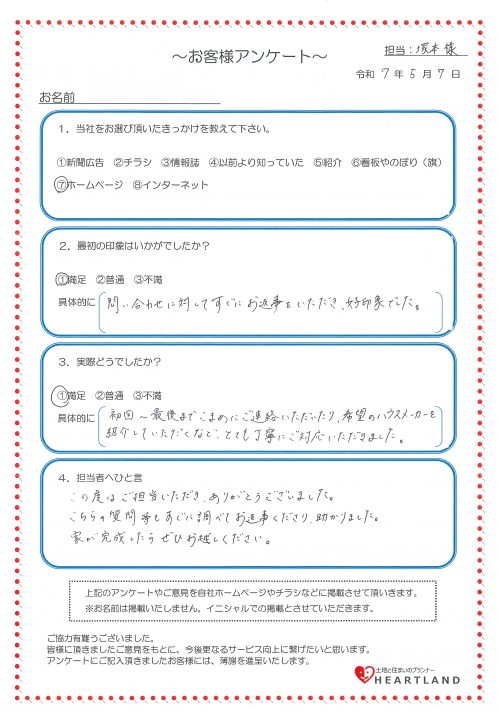 ～お客様アンケート～
担当：塚本様
令和 7年 5月 7日
お名前
1．当社をお選び頂いたきっかけを教えて下さい。
①新聞広告 ②チラシ ③情報誌 ④以前より知っていた ⑤紹介 ⑥看板やのぼり（旗）
⑦ホームページ ⑧インターネット
2．最初の印象はいかがでしたか？
①満足 ②普通 ③不満
具体的に 問い合わせに対してすぐにお返事をいただき、好印象でした。
3．実際どうでしたか？
①満足 ②普通 ③不満
具体的に 初回～最後までこまめにご連絡いただいたり、希望のハウスメーカーを
紹介していただくなど、とても丁寧にご対応いただきました。
4．担当者へひと言
この度はご担当いただき、ありがとうございました。
こちらの質問等もすぐに調べてお返事くださり、助かりました。
家が完成したらぜひお越しください。
上記のアンケートやご意見を自社ホームページやチラシなどに掲載させて頂いきます。
※お名前は掲載いたしません。イニシャルでの掲載とさせていただきます。
ご協力有難うございました。
皆様に頂きましたご意見をもとに、今後更なるサービス向上に繋げたいと思います。
アンケートにご記入頂きましたお客様には、薄謝を進呈いたします。
土地と住まいのプランナー
HEARTLAND